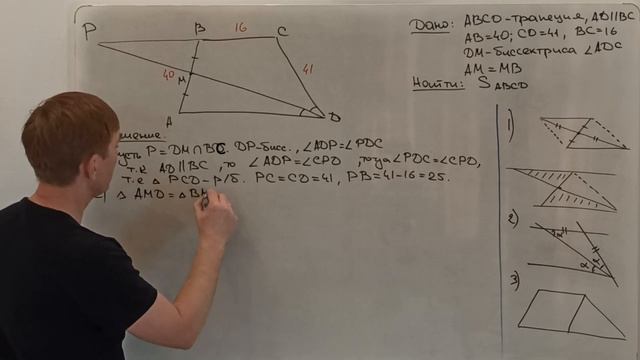 P B 16 C
40 M 41
A D
Дано: ABCD-трапеция, AD||BC
AB=40; CD=41, BC=16
DM-биссектриса ∠ADC
AM=MB
Найти: S ABCD
P=DM∩BC. DP-бисс., ∠ADP=∠PDC
т.к AD||BC, то ∠ADP=∠CPD, тогда ∠PDC=∠CPD,
т.е △ PCD-р/б. PC=CD=41, PB=41-16=25.
△ AMD=△BM
1)
2)
α α α
3)